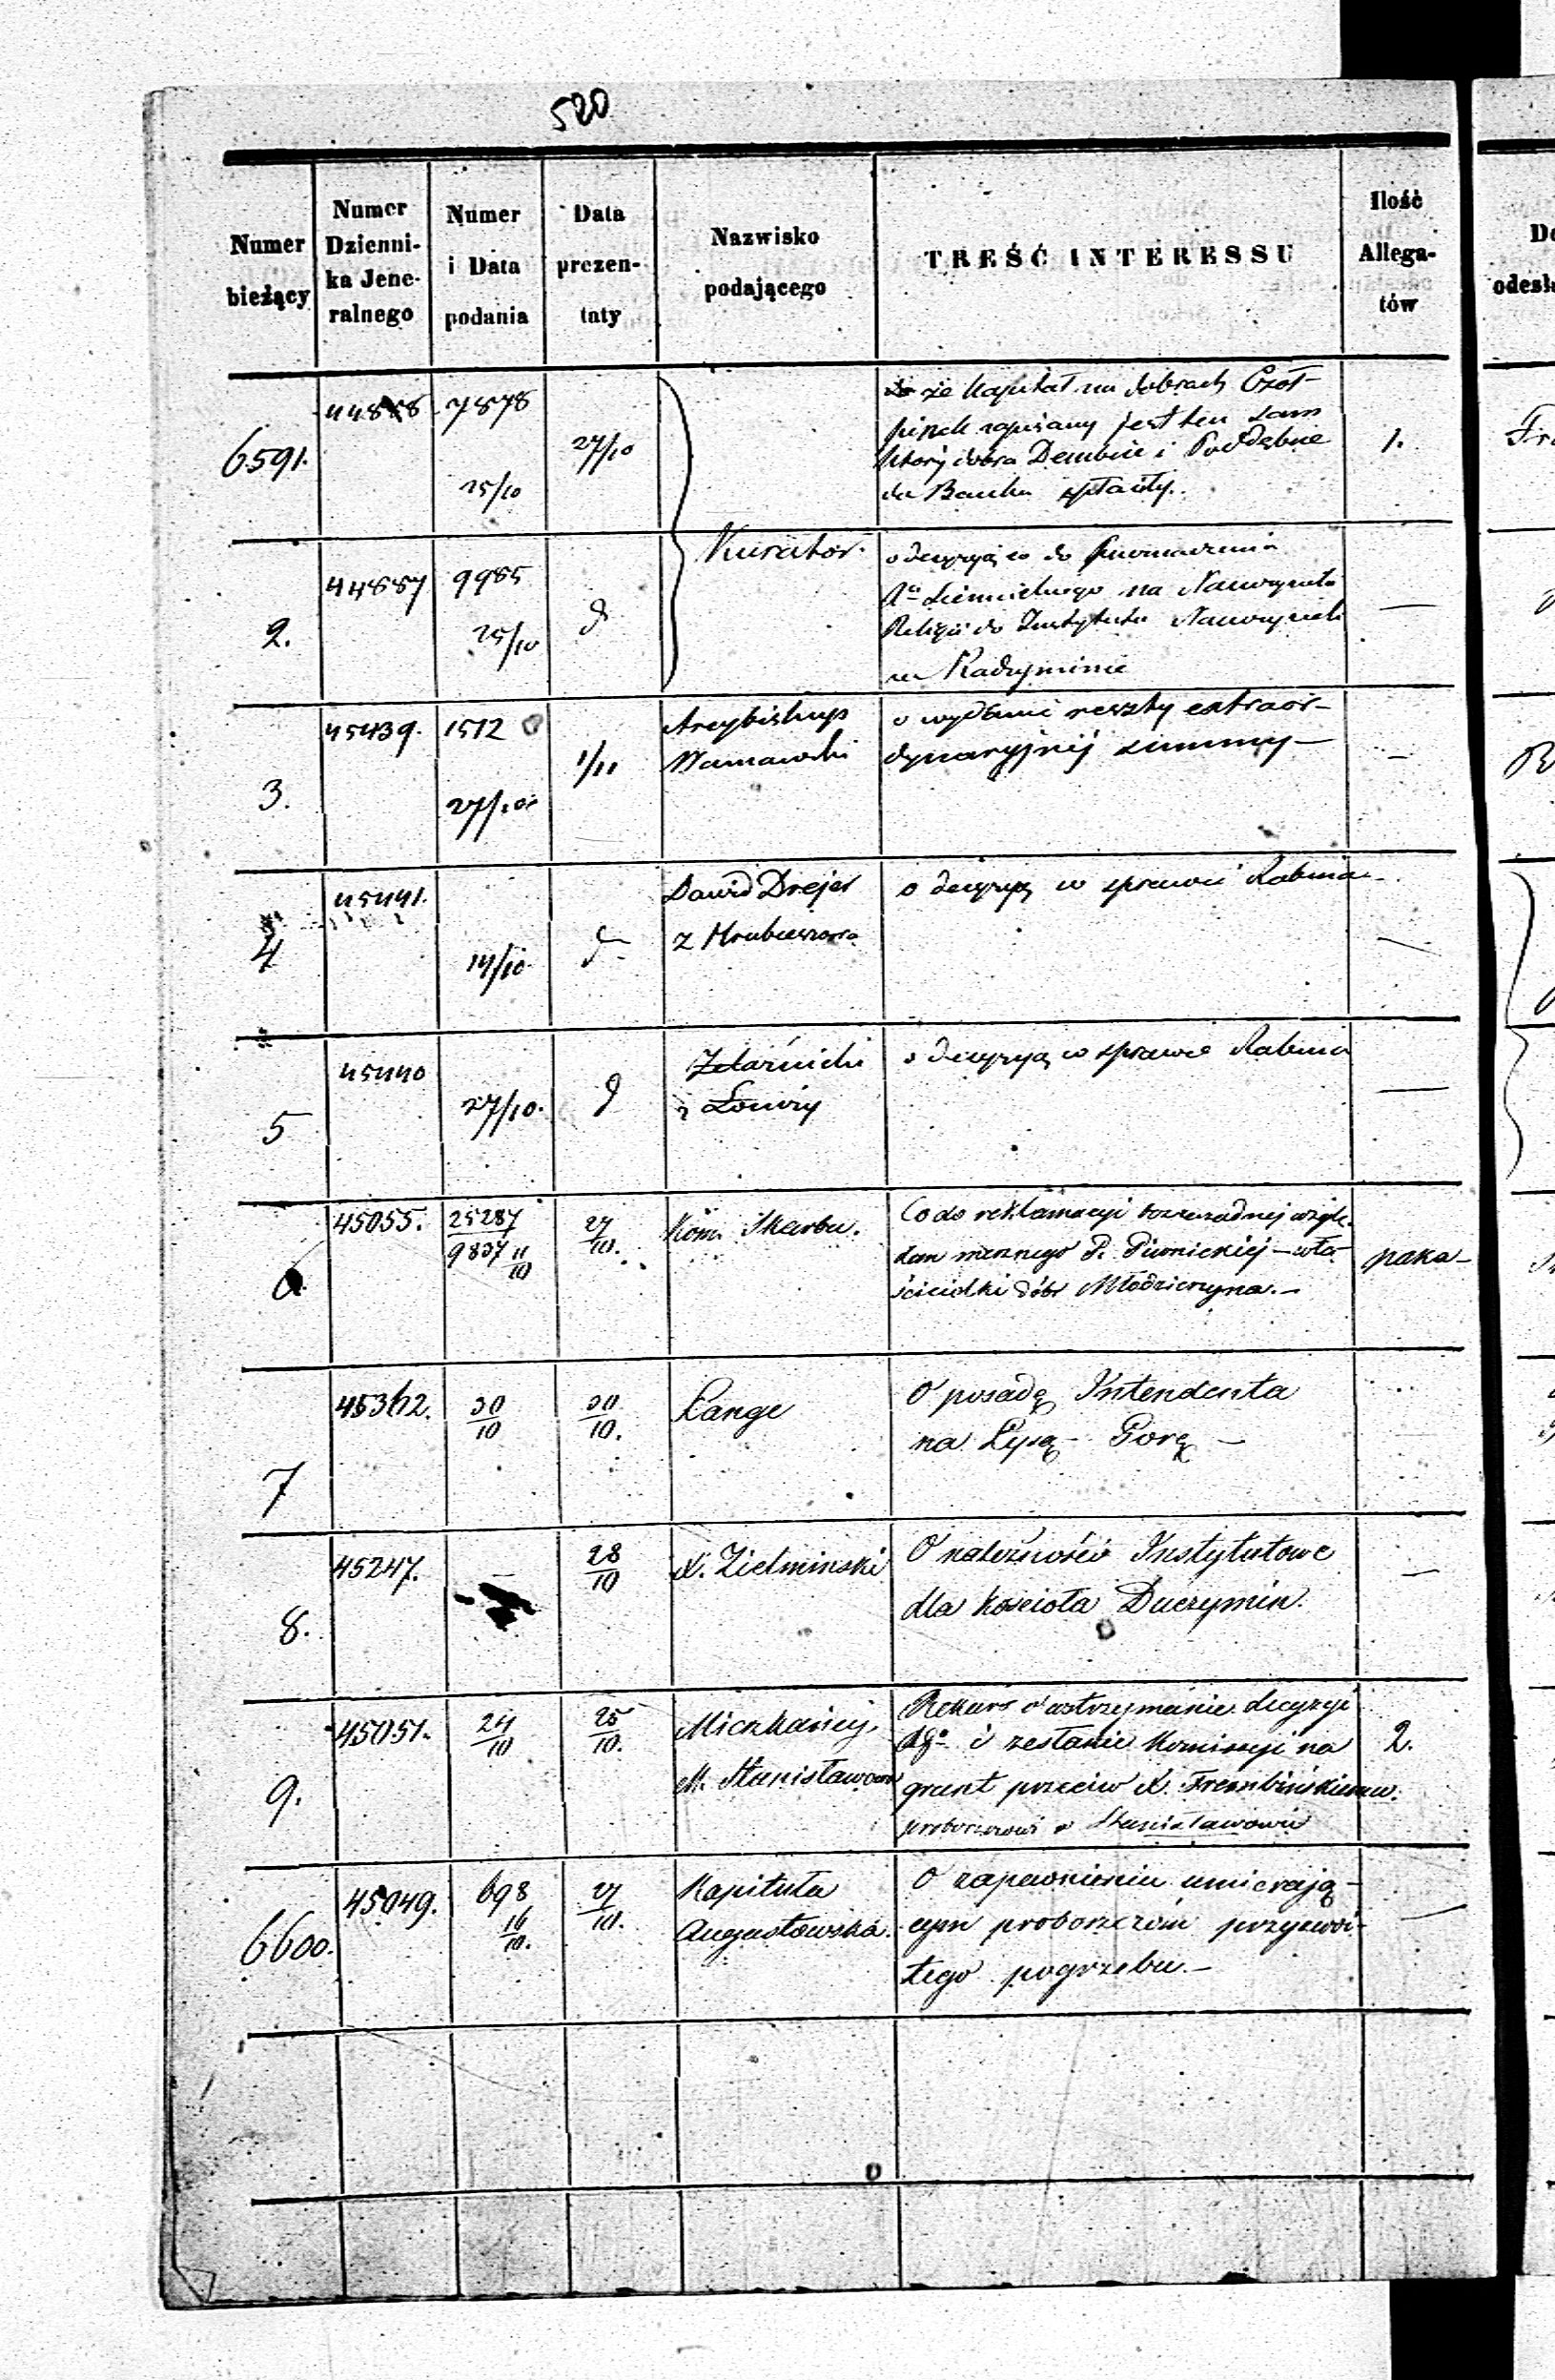 520
Numer bieżący
Numer Dzienni-ka Jene-ralnego
Numer i Data podania
Data prezen-taty
Nazwisko podającego
TREŚĆ INTERESSU
Ilość Allega-tów
6591. 7878 25/10 27/10
że Kapitał na dobrach Czoł-
pinek zapisany jest ten sam
który dobra Dembie i Poddębie
do Banku spłaciły.
1.
2. 44887 9985 25/10 d
Kurator.
o decyzją co do
na Nauczyciela
Religii do Instytutu Nauczycieli
w Radzyminie
—
3. 45439. 1572 27/10 1/11
Arcybiskup
Warszawski
o wydanie reszty extraor-
dynaryjnéj summy —
—
4 45441. 14/10 d
Dawid Drejer
z Hrubieszowa
o decyzją w sprawie Rabina
—
5 45440 27/10. d
z Łomży
o decyzją w sprawie Rabina
—
6 45055. 25287 / 9837 11/10 27/10.
Kom. Skarbu.
Co do reklamacyi
Piwnickiéj — wła-
ścicielki dóbr Młodzieszyna. —
paka —
7 45362. 30/10 30/10.
Lange
O posadę Intendenta
na Łysą - Gorę —
8. 45247. — 28/10
X. Zielminski
O należność Instytutowe
dla kościoła Duczymin.
—
9. 45051. 24/10 25/10.
M. Stanisławowa
Rekurs o wstrzymanie decyzyi
i zesłanie Komissyi na
grunt przeciw X. Trembińskiemu.
proboszczowi w Stanisławowie
2.
6600. 45049. 698 16/10. 27/10.
Kapituła
Augustowska.
O zapewnieniu umierają-
cym proboszczom przyzwoi-
tego pogrzebu. —
—